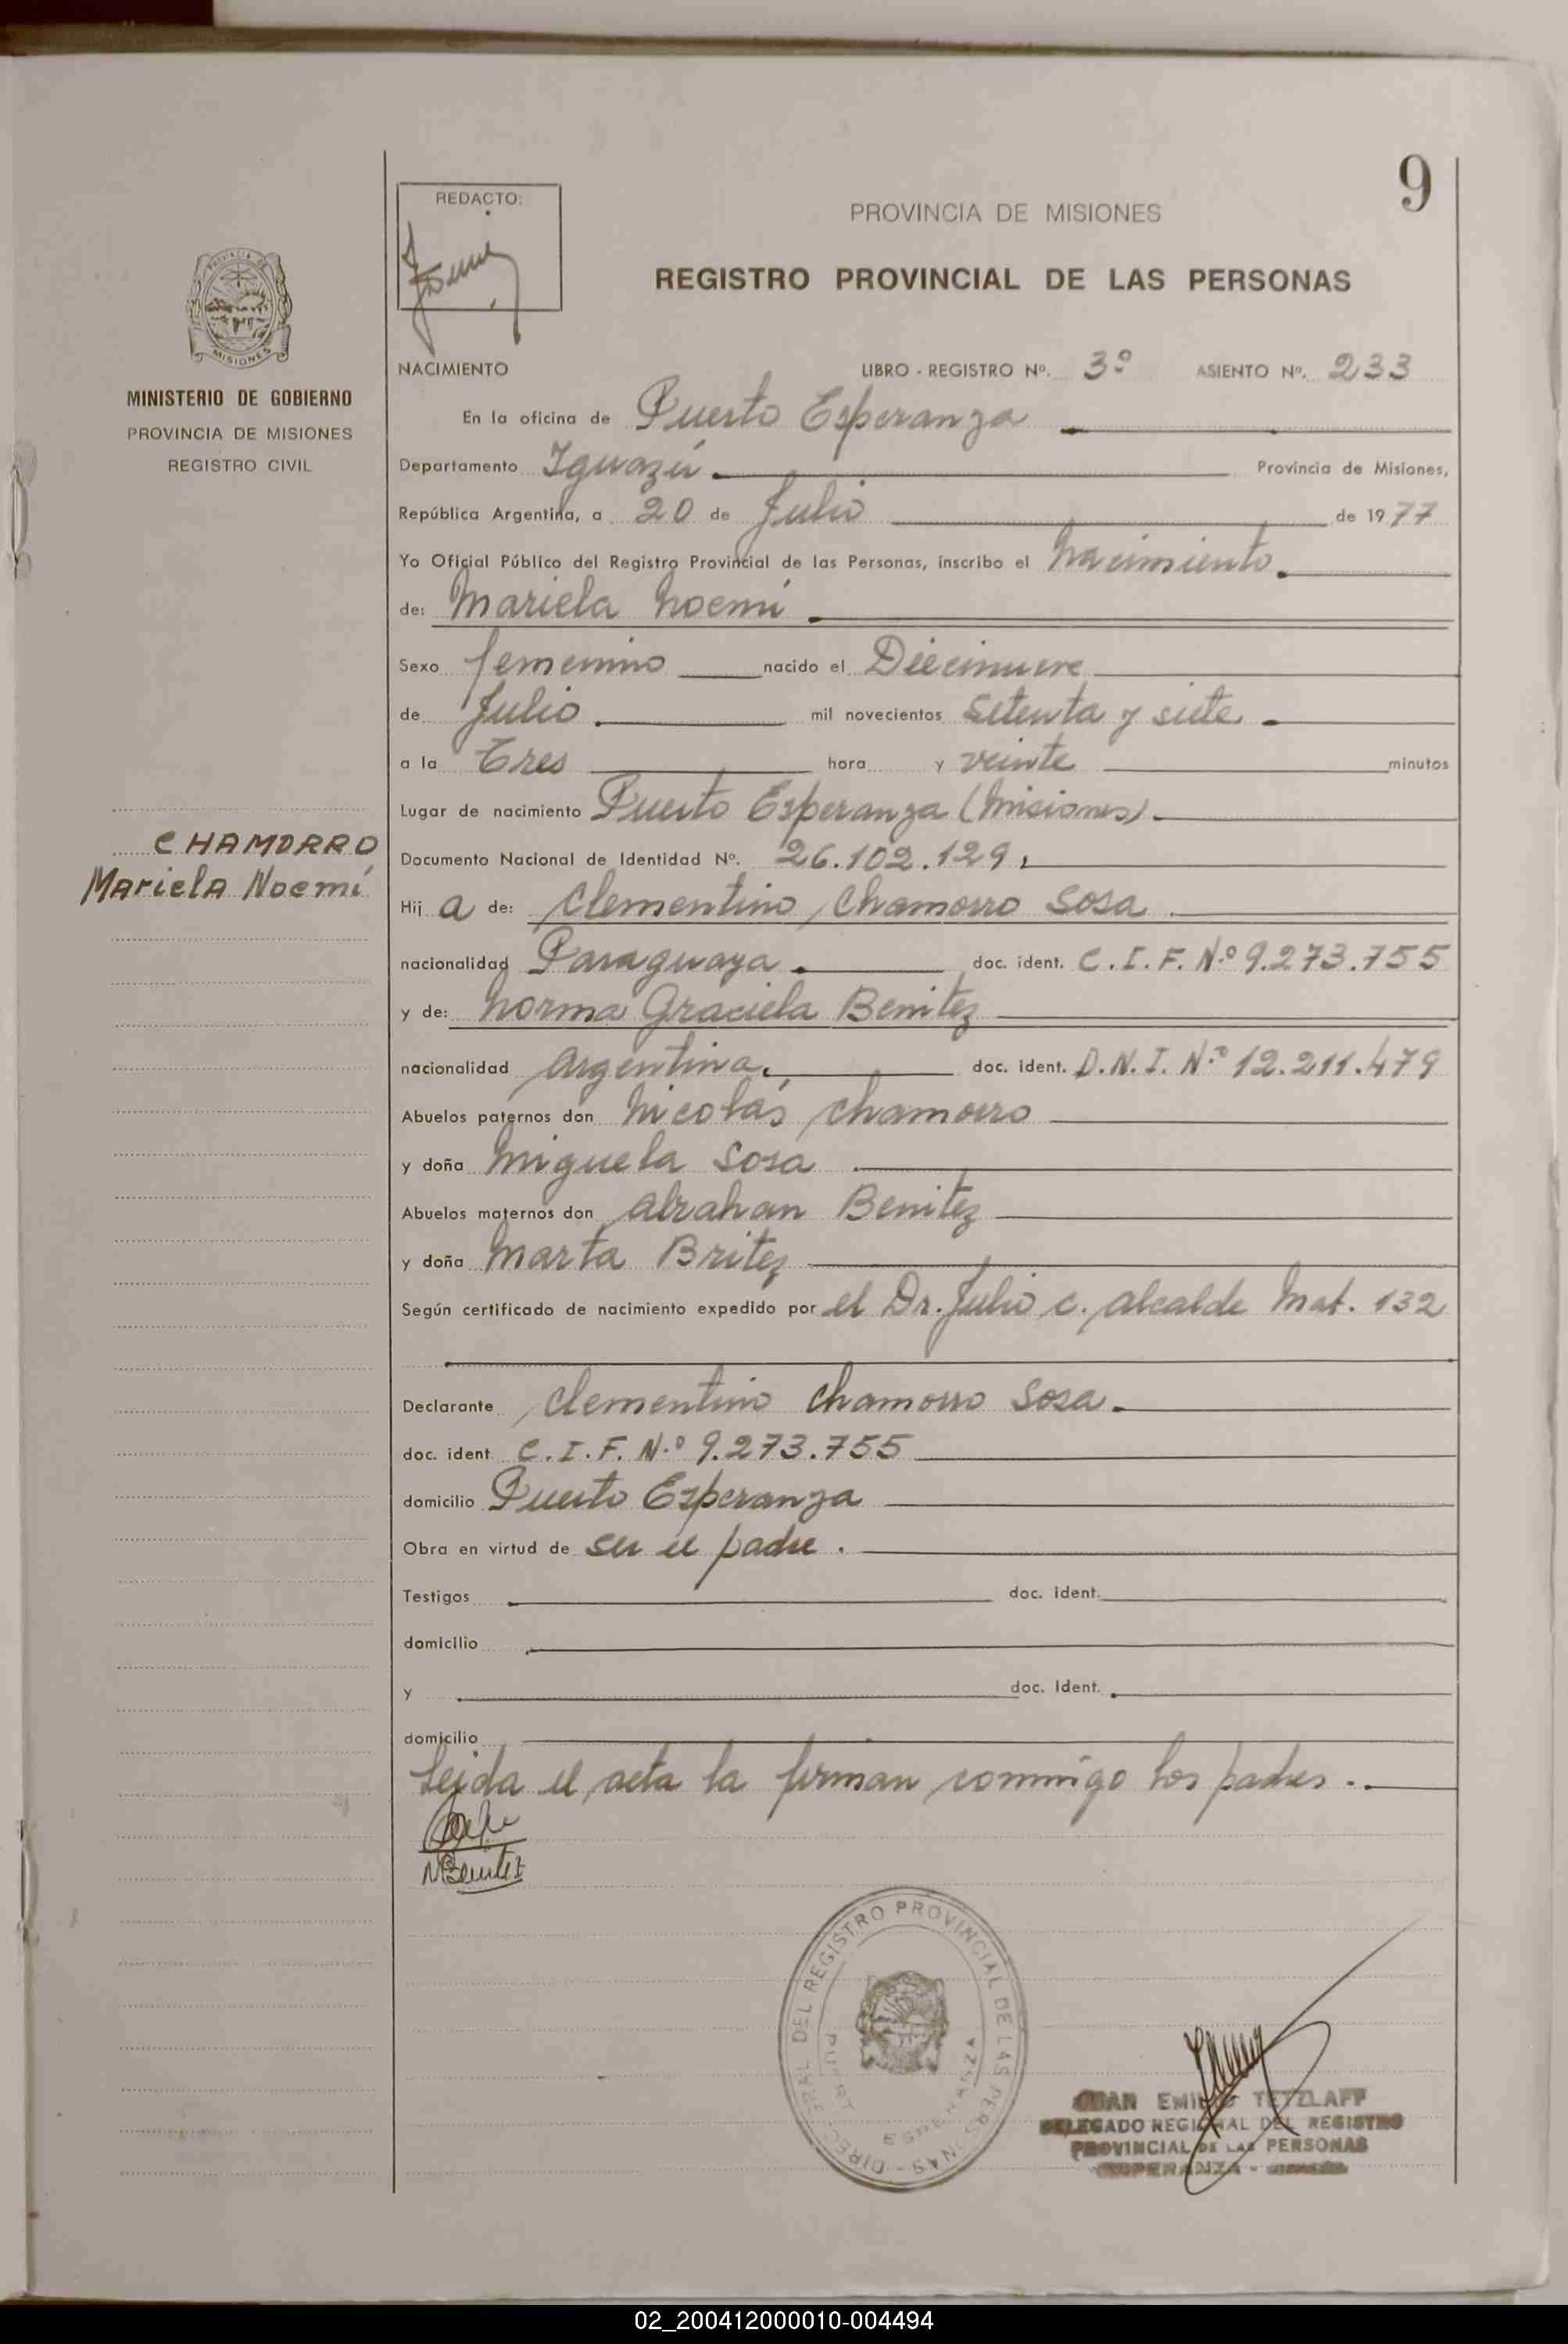 9
REDACTO:
PROVINCIA DE MISIONES
REGISTRO PROVINCIAL DE LAS PERSONAS
PROVINCIA DE
MISIONES
MINISTERIO DE GOBIERNO
PROVINCIA DE MISIONES
REGISTRO CIVIL
CHAMORRO
Mariela Noemí
NACIMIENTO LIBRO - REGISTRO Nº. 3º ASIENTO Nº. 233
En la oficina de Puerto Esperanza
Departamento Iguazú Provincia de Misiones,
República Argentina, a 20 de Julio de 1977
Yo Oficial Público del Registro Provincial de las Personas, inscribo el nacimiento
de: Mariela Noemí
Sexo femenino nacido el Diecinueve
de Julio mil novecientos setenta y siete
a la Tres hora y veinte minutos
Lugar de nacimiento Puerto Esperanza (Misiones)
Documento Nacional de Identidad Nº. 26.102.129
Hij a de: Clementino Chamorro Sosa
nacionalidad Paraguaya doc. ident. C.I.F. Nº 9.273.755
y de: Norma Graciela Benitez
nacionalidad Argentina doc. ident. D.N.I. Nº 12.211.479
Abuelos paternos don Nicolás Chamorro
y doña Miguela Sosa
Abuelos maternos don Abrahan Benitez
y doña Marta Britez
Según certificado de nacimiento expedido por el Dr. Julio C. Alcalde Mat. 132
Declarante Clementino Chamorro Sosa
doc. ident C.I.F. Nº 9.273.755
domicilio Puerto Esperanza
Obra en virtud de ser el padre.
Testigos doc. ident.
domicilio
y doc. Ident.
domicilio
Leida el acta la firman conmigo los padres.
NBenitez
DIREC. GRAL. DEL REGISTRO PROVINCIAL DE LAS PERSONAS
PUERTO ESPERANZA
JUAN EMILIO TETZLAFF
DELEGADO REGIONAL DEL REGISTRO
PROVINCIAL DE LAS PERSONAS
ESPERANZA -
02_200412000010-004494